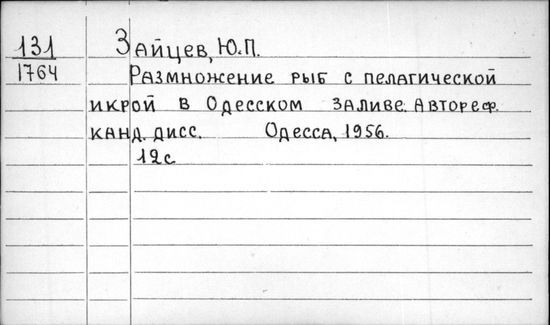 131 Зайцев, Ю.П.
1764 Размножение рыб с пелагической
икрой в Одесском заливе. Автореф.
канд. дисс. Одесса, 1956.
12с